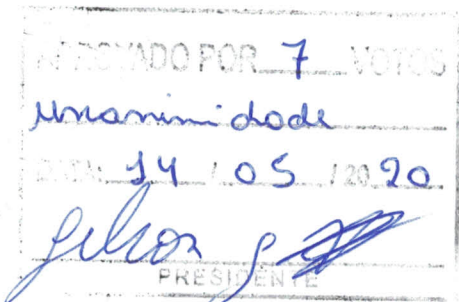 APROVADO POR 7 VOTOS
Unanimidade
DATA: 14 / 05 / 20 20
PRESIDENTE